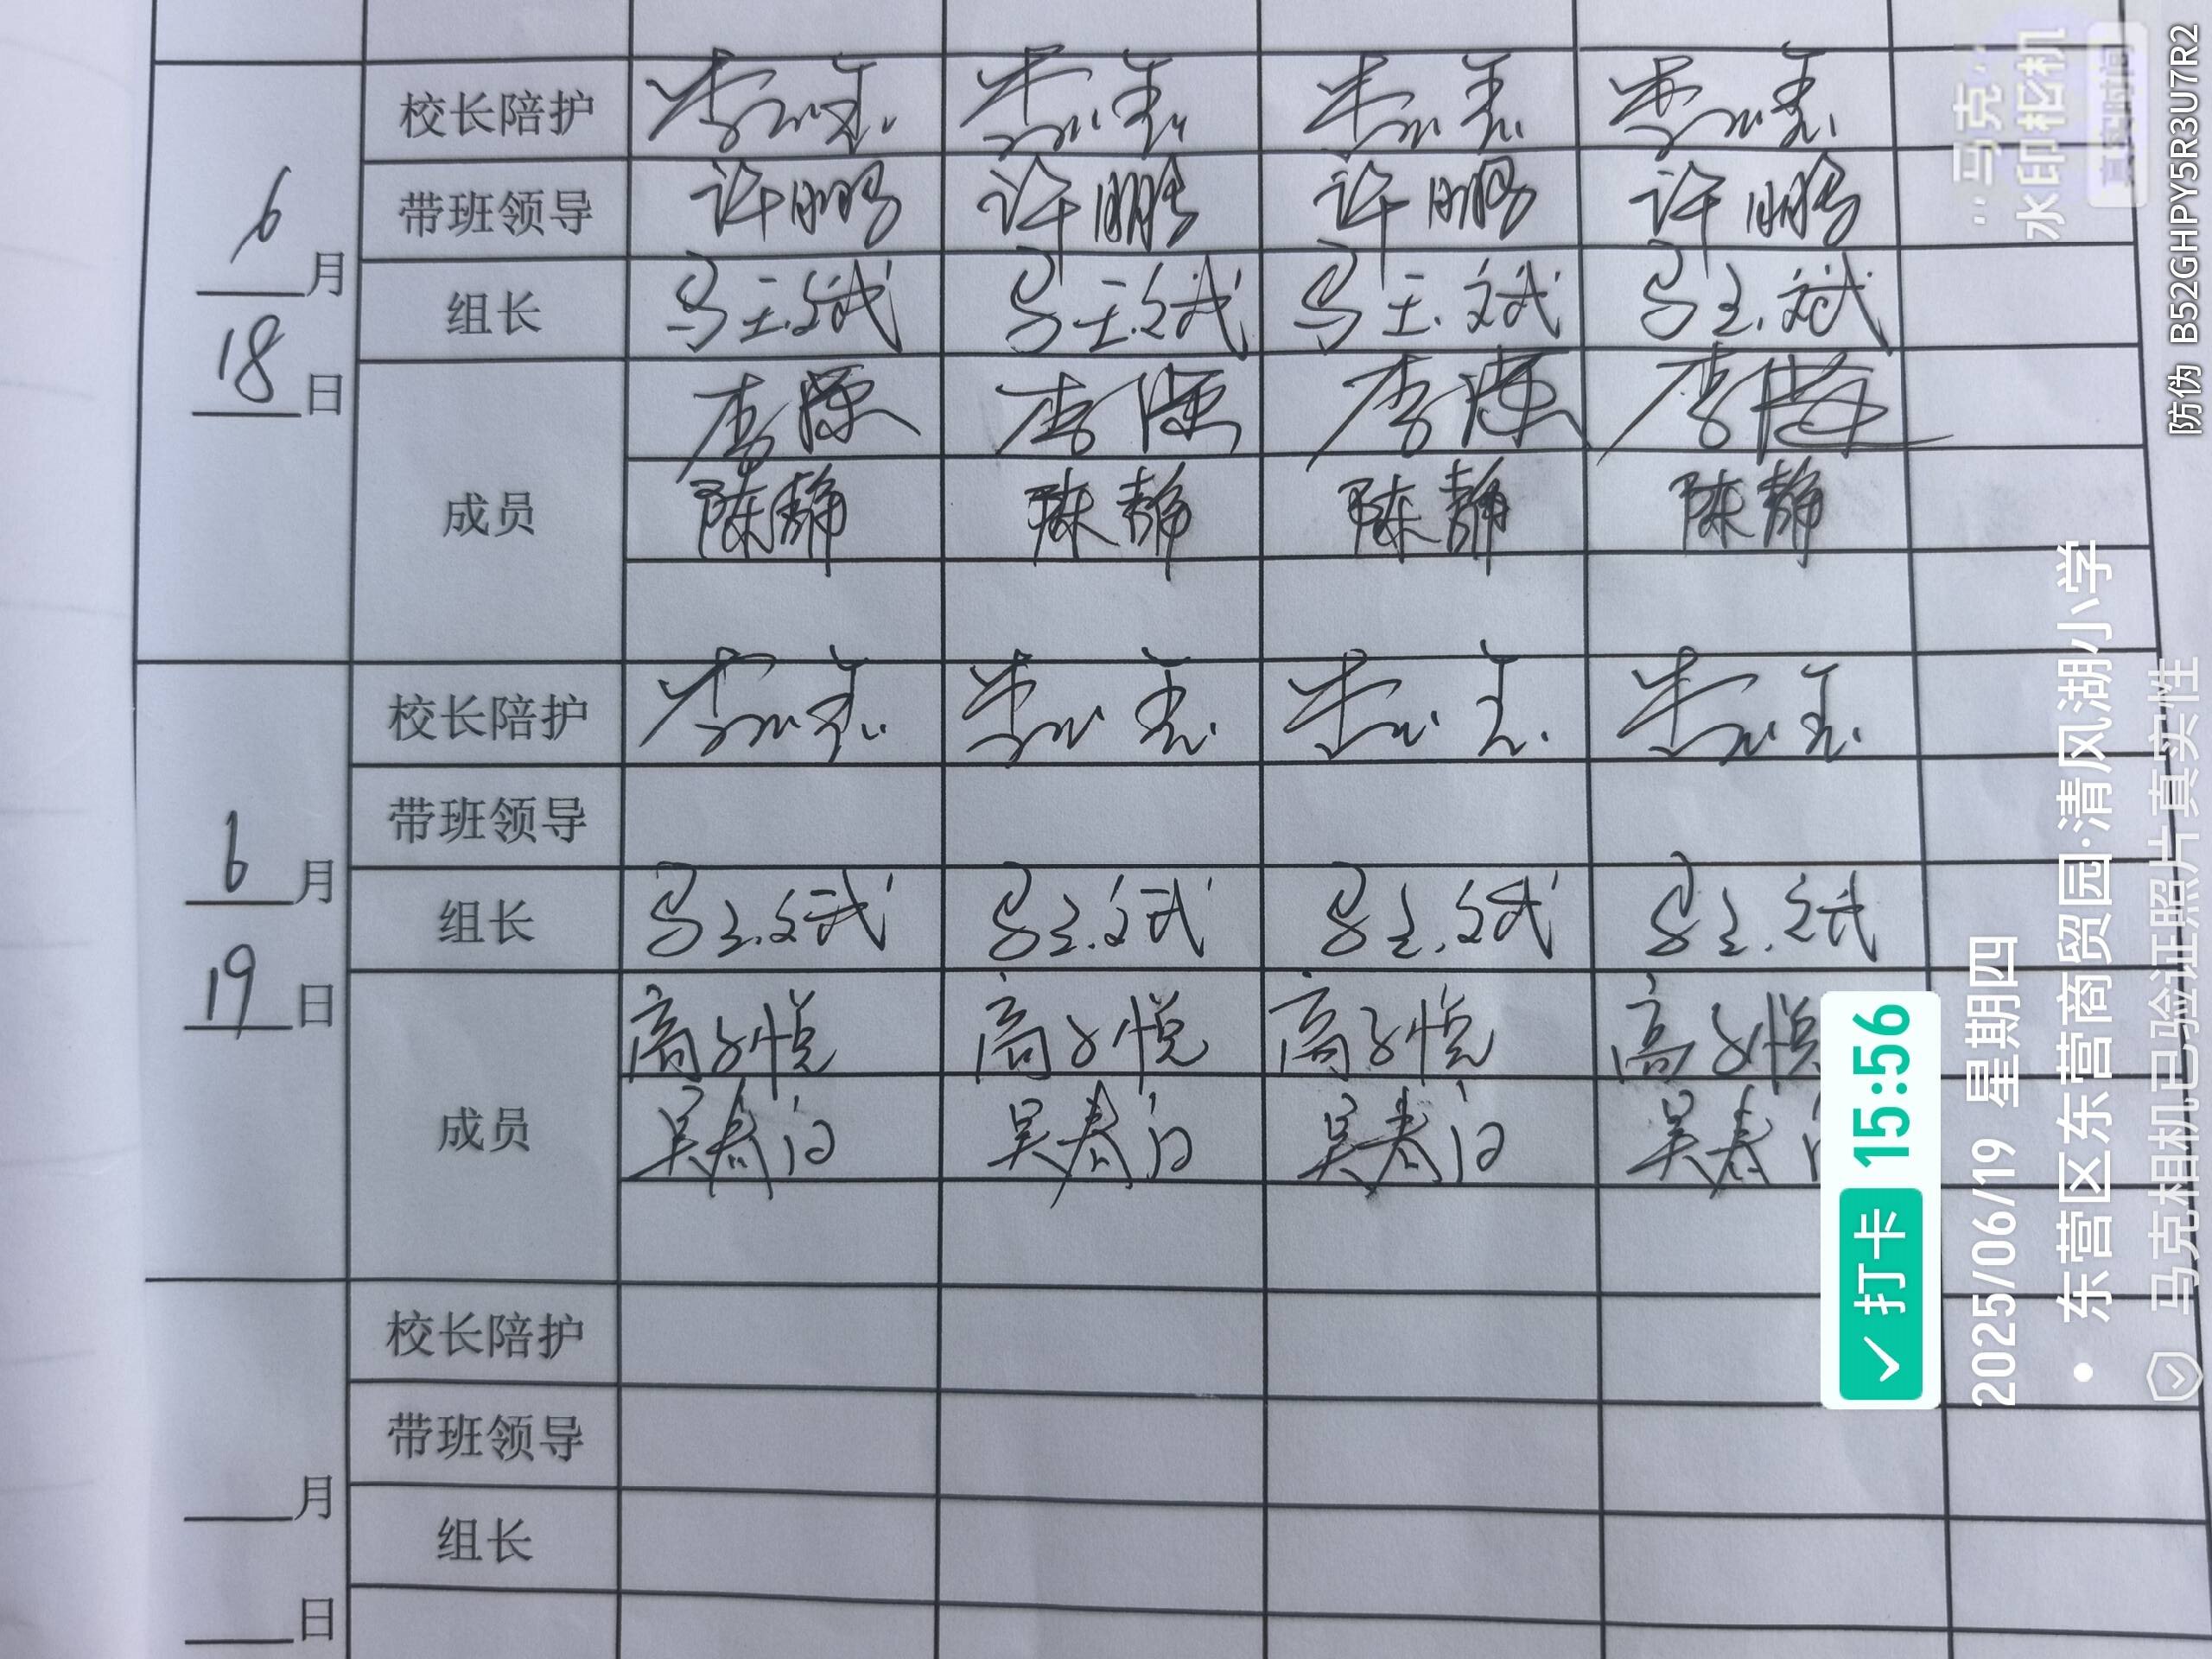 校长陪护
带班领导 许鹏 许鹏 许鹏 许鹏
6月
组长 马玉斌 马玉斌 马玉斌 马玉斌
18日
李 李 李 李
成员 陈静 陈静 陈静 陈静
校长陪护
带班领导
6月
组长 马玉斌 马玉斌 马玉斌 马玉斌
19日
高子悦 高子悦 高子悦 高子悦
成员 吴春 吴春 吴春 吴春
校长陪护
带班领导
月
组长
日
“马克”
水印相机
真实时间
防伪 B52GHPY5R3U7R2
打卡 15:56
2025/06/19 星期四
东营区东营商贸园·清风湖小学
马克相机已验证照片真实性